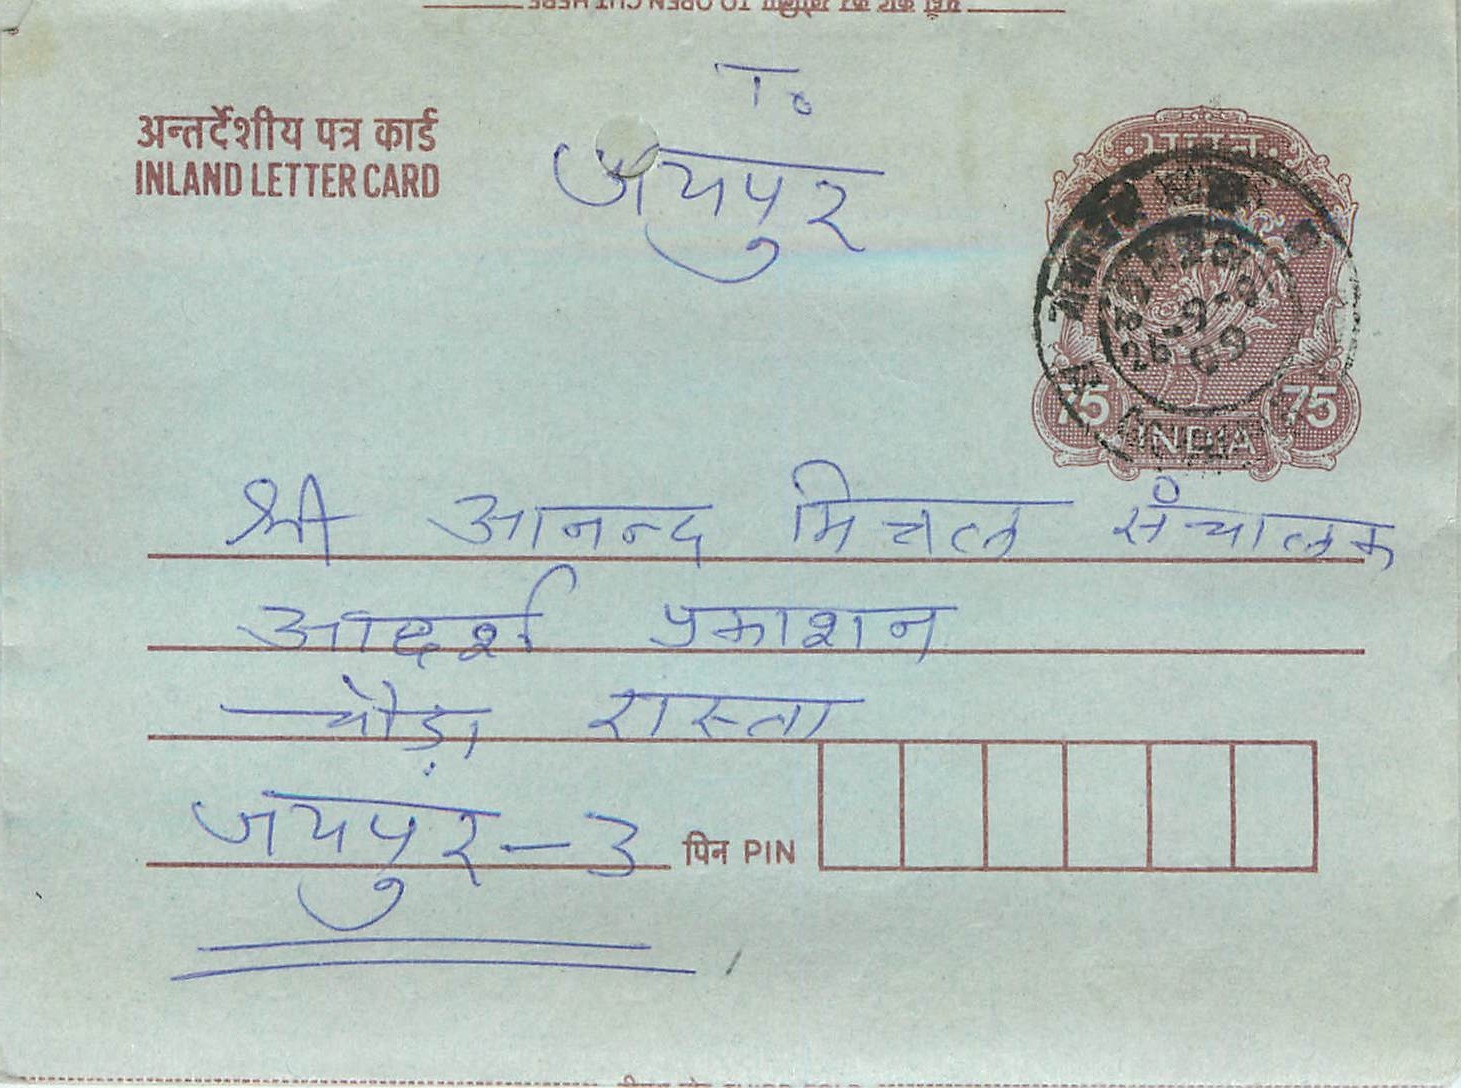 यहाँ काट कर खोलिए TO OPEN CUT HERE
To
अन्तर्देशीय पत्र कार्ड
INLAND LETTER CARD
जयपुर
भारत
75 75
INDIA
श्री आनन्द मित्तल संचालक
आदर्श प्रकाशन
चौड़ा रास्ता
जयपुर - 3
पिन PIN